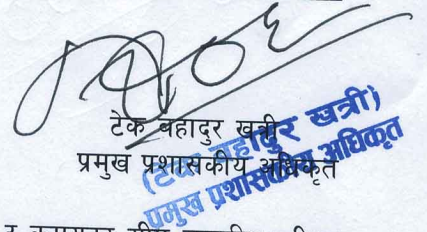 टेक बहादुर खत्री
प्रमुख प्रशासकीय अधिकृत
(टेक बहादुर खत्री)
प्रमुख प्रशासकिय अधिकृत